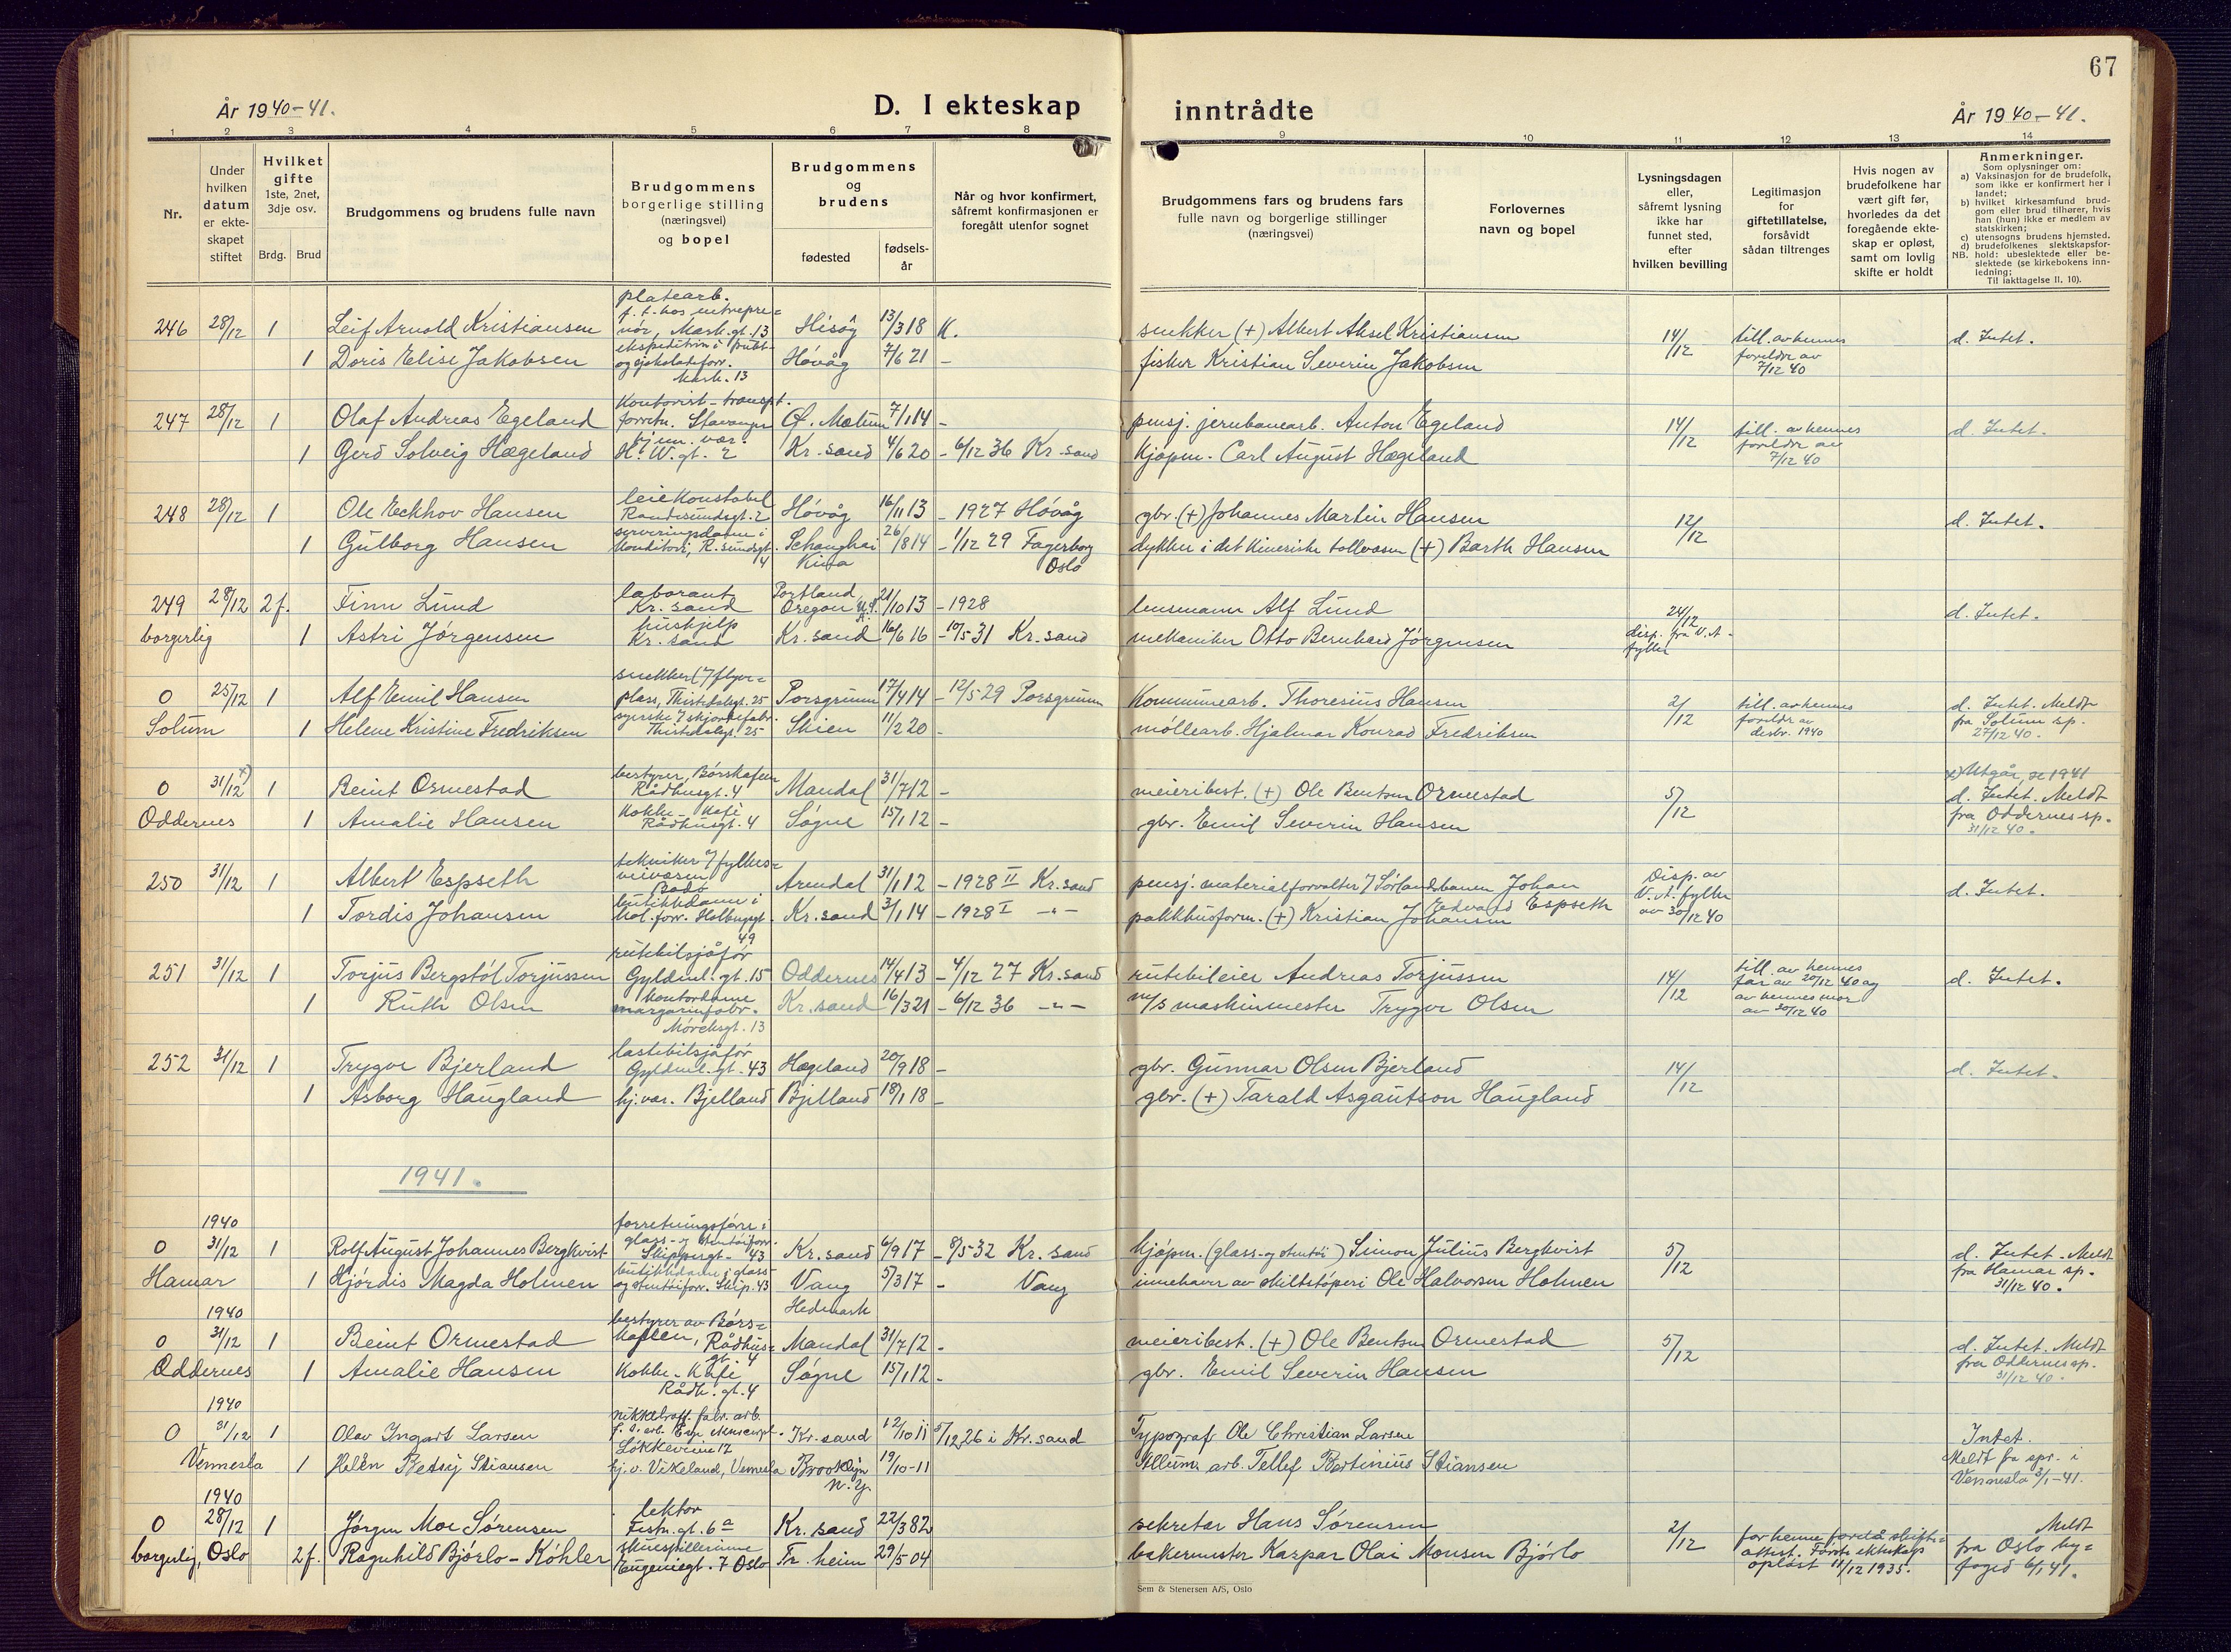 67
År 1940-41.
D. I ekteskap inntrådte
År 1940-41.
1 2 3 4 5 6 7 8 9 10 11 12 13 14
Nr.
Under hvilken datum er ekteskapet stiftet
Hvilket gifte 1ste, 2net, 3dje osv.
Brdg. Brud
Brudgommens og brudens fulle navn
Brudgommens borgerlige stilling (næringsvei) og bopel
Brudgommens og brudens
fødested
fødsels-år
Når og hvor konfirmert, såfremt konfirmasjonen er foregått utenfor sognet
Brudgommens fars og brudens fars fulle navn og borgerlige stillinger (næringsvei)
Forlovernes navn og bopel
Lysningsdagen eller, såfremt lysning ikke har funnet sted, efter hvilken bevilling
Legitimasjon for giftetillatelse, forsåvidt sådan tiltrenges
Hvis nogen av brudefolkene har vært gift før, hvorledes da det foregående ekteskap er opløst, samt om lovlig skifte er holdt
Anmerkninger.
Som oplysninger om:
a) Vaksinasjon for de brudefolk, som ikke er konfirmert her i landet;
b) hvilket kirkesamfund brudgom eller brud tilhører, hvis han (hun) ikke er medlem av statskirken;
c) utensogns brudens hjemsted.
d) brudefolkenes slektskapsforhold: ubeslektede eller beslektede (se kirkebokens innledning;
NB.
Til iakttagelse II. 10).
246 28/12 1 Leif Arnold Kristiansen platearb. f. t. hos entreprenór, Mark.gt. 13 Hisøy 13/3 18 K. snekker (+) Albert Aksel Kristiansen 14/12 till. av hennes foreldre av 7/12 40 d. Intet.
1 Doris Elise Jakobsen ekspeditrise i frukt- og sjokoladeforr. Mark. 13 Hóvåg 7/6 21 - fisker Kristian Severin Jakobsen
247 28/12 1 Olaf Andreas Egeland Kontorist - transpt. forretn. Stavanger 7/1 14 - pensj. jernbanearb. Anton Egeland 14/12 till. av hennes foreldre av 7/12 40 d. Intet.
1 Gerd Solveig Hægeland hj.m. vær. H. W. gt. 2 Kr.sand 4/6 20 - 6/12 36 Kr.sand Kjøpm. Carl August Hægeland
248 28/12 1 Ole Eckhov Hansen Randesundsgt. 2 Hóvåg 16/11 13 - 1927 Hóvåg gbr. (+) Johannes Martin Hansen 12/12 d. Intet.
1 Gulborg Hansen serveringsdame i konditori, R.sundsgt. 4 Schanghai Kina 26/8 14 - 1/12 29 Fagerborg Oslo dykker i det kinesiske tollvesen (+) Barth Hansen
249 28/12 2f. Finn Lund laborant Kr.sand Portland Oregon U.S.A. 21/10 13 - 1928 lensmann Alf Lund 24/12 disp. fra V.A-fylke d. Intet.
borgerlig 1 Astri Jørgensen hushjelp Kr.sand Kr.sand 16/6 16 - 10/5 31 Kr.sand mekaniker Otto Bernhard Jørgensen
0 25/12 1 Alf Emil Hansen snekker v/ flyveplass, Thistedalsgt. 25 Porsgrunn 17/4 14 - 12/5 29 Porsgrunn Kommunearb. Thoresius Hansen 2/12 till. av hennes foreldre av desbr. 1940 d. Intet. Meldt fra Solum sp. 27/12 40.
Solum 1 Helene Kristine Fredriksen syerske v/ skjortefabr. Thistedalsgt. 25 Skien 11/2 20 - møllearb. Hjalmar Konrad Fredriksen
0 31/12 x) 1 Beint Ormestad bestyrer, Børskafeen Rådhusgt. 4 Mandal 31/7 12 - meieribest. (+) Ole Bentsen Ormestad 5/12 x) Utgår, se 1941 d. Intet. Meldt fra Oddernes sp. 31/12 40.
Oddernes 1 Amalie Hansen Kokke - Kafé Rådhusgt. 4 Søgne 15/1 12 - gbr. Emil Severin Hansen
250 31/12 1 Albert Espseth tekniker v/ fylkesveivesen Bodø Arendal 31/1 12 - 1928 II Kr.sand pensj. materialforvalter v/ Sørlandsbanen Johan Edvard Espseth Disp. av V.A. fylke av 30/12 40 d. Intet.
1 Tordis Johansen butikkdame i kol.forr. Holbergsgt. 49 Kr.sand 3/1 14 - 1928 I -"- pakkhusform. (+) Kristian Johansen
251 31/12 1 Torjus Bergstól Torjussen rutebilsjåfór Gyldenl.gt. 15 Oddernes 14/4 13 - 4/12 27 Kr.sand rutebileier Andreas Torjussen 14/12 till. av hennes far av 20/12 40 og av hennes mor av 30/12 40 d. Intet.
1 Ruth Olsen kontordame margarinfabr. Mórchsgt. 13 Kr.sand 16/3 21 - 6/12 36 -"- m/s maskinmester Trygve Olsen
252 31/12 1 Trygve Bjerland lastebilsjåfór Gyldenl.gt. 43 Hægeland 20/9 18 - gbr. Gunnar Olsen Bjerland 14/12 d. Intet.
1 Asborg Haugland hj.vær. Bjelland Bjelland 18/1 18 - gbr. (+) Tarald Asgautson Haugland
1941.
1940
0 31/12 1 Rolf August Johannes Bergkvist forretningsfører i glass- og stentøiforr. Skippergt. 43 Kr.sand 6/9 17 - 8/5 32 Kr.sand kjøpm. (glass- og stentøi) Simon Julius Bergkvist 5/12 d. Intet - Meldt fra Hamar sp. 31/12 40.
Hamar 1 Hjórdis Magda Holmen butikkdame i glass- og stentøiforr. Skip. 43 Vang Hedmark 5/3 17 - Vang innehaver av skiltstøperi Ole Halvorsen Holmen
1940
0 31/12 1 Beint Ormestad bestyrer av Børskafeen, Rådhusgt. 4 Mandal 31/7 12 - meieribest. (+) Ole Bentsen Ormestad 5/12 d. Intet. Meldt fra Oddernes sp. 31/12 40.
Oddernes 1 Amalie Hansen Kokke - Kafé Rådh. gt. 4 Søgne 15/1 12 - gbr. Emil Severin Hansen
1940
0 31/12 1 Olav Ingart Larsen nikkelraff. fabr. arb. Løkkeveien 12 Kr.sand 12/10 11 5/12 26 i Kr.sand Typograf Ole Christian Larsen Intet. Meldt fra spr. i Vennesla 2/1-41.
Vennesla 1 Helen Betsy Stiansen hj.v. Vikeland, Vennesla Brooklyn N.Y. 19/10-11 Allum. arb. Tellef Bertinius Stiansen
1940
0 28/12 1 Jørgen Moe Sørensen lektor Festn.gt. 6a Kr.sand 22/3 82 sekretær Hans Sørensen 2/12 for henne foreliå skifteattest. Første ekteskap opløst 11/12 1935. Meldt fra Oslo byfoged 6/1 41.
borgerlig, Oslo 2f. Ragnhild Bjórlo-Kóhler skuespillerinne Eugeniegt. 7 Oslo Tr.heim 29/5 04 bakermester Kaspar Olai Monsen Bjørlo
Sem & Stenersen A/S, Oslo